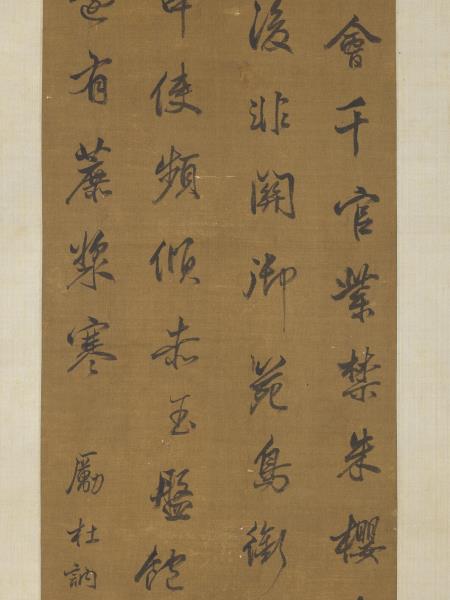 會千官紫禁朱櫻
後非關御苑鳥銜
中使頻傾赤玉盤飽
還有蔗漿寒
勵杜訥